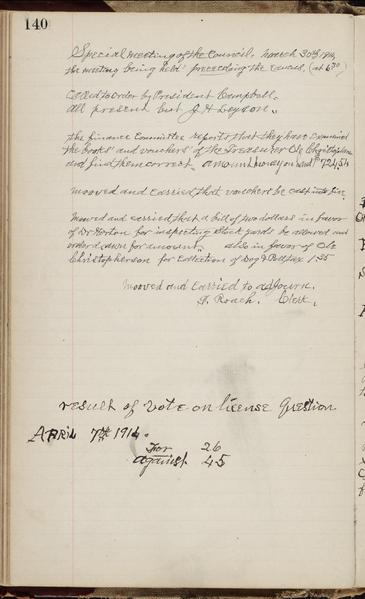 140
Special meeting of the Council. March 30th 1914,
the meeting being held preceeding the caucus. (at 6 30)
Called to order by President Campbell.
all present but J. H. Leyson.
the finance Committee reports that they have examined
the books and vouchers of the Treasurer Ole Christopherson
and find them correct. amount money on hand $724.54
mooved and carried that vouchers be cast into fire.
Mooved and carried that a bill of two dollars in favor
of Dr Horton for inspecting stock yards be allowed and
order drawn for amount. also in favor of Ole
Christopherson for Collection of Dog & Polltax 1.35
mooved and Carried to adjourn.
Roach. Clerk.
result of Vote on license Question
APRIL 7th 1914.
For 26
against 45